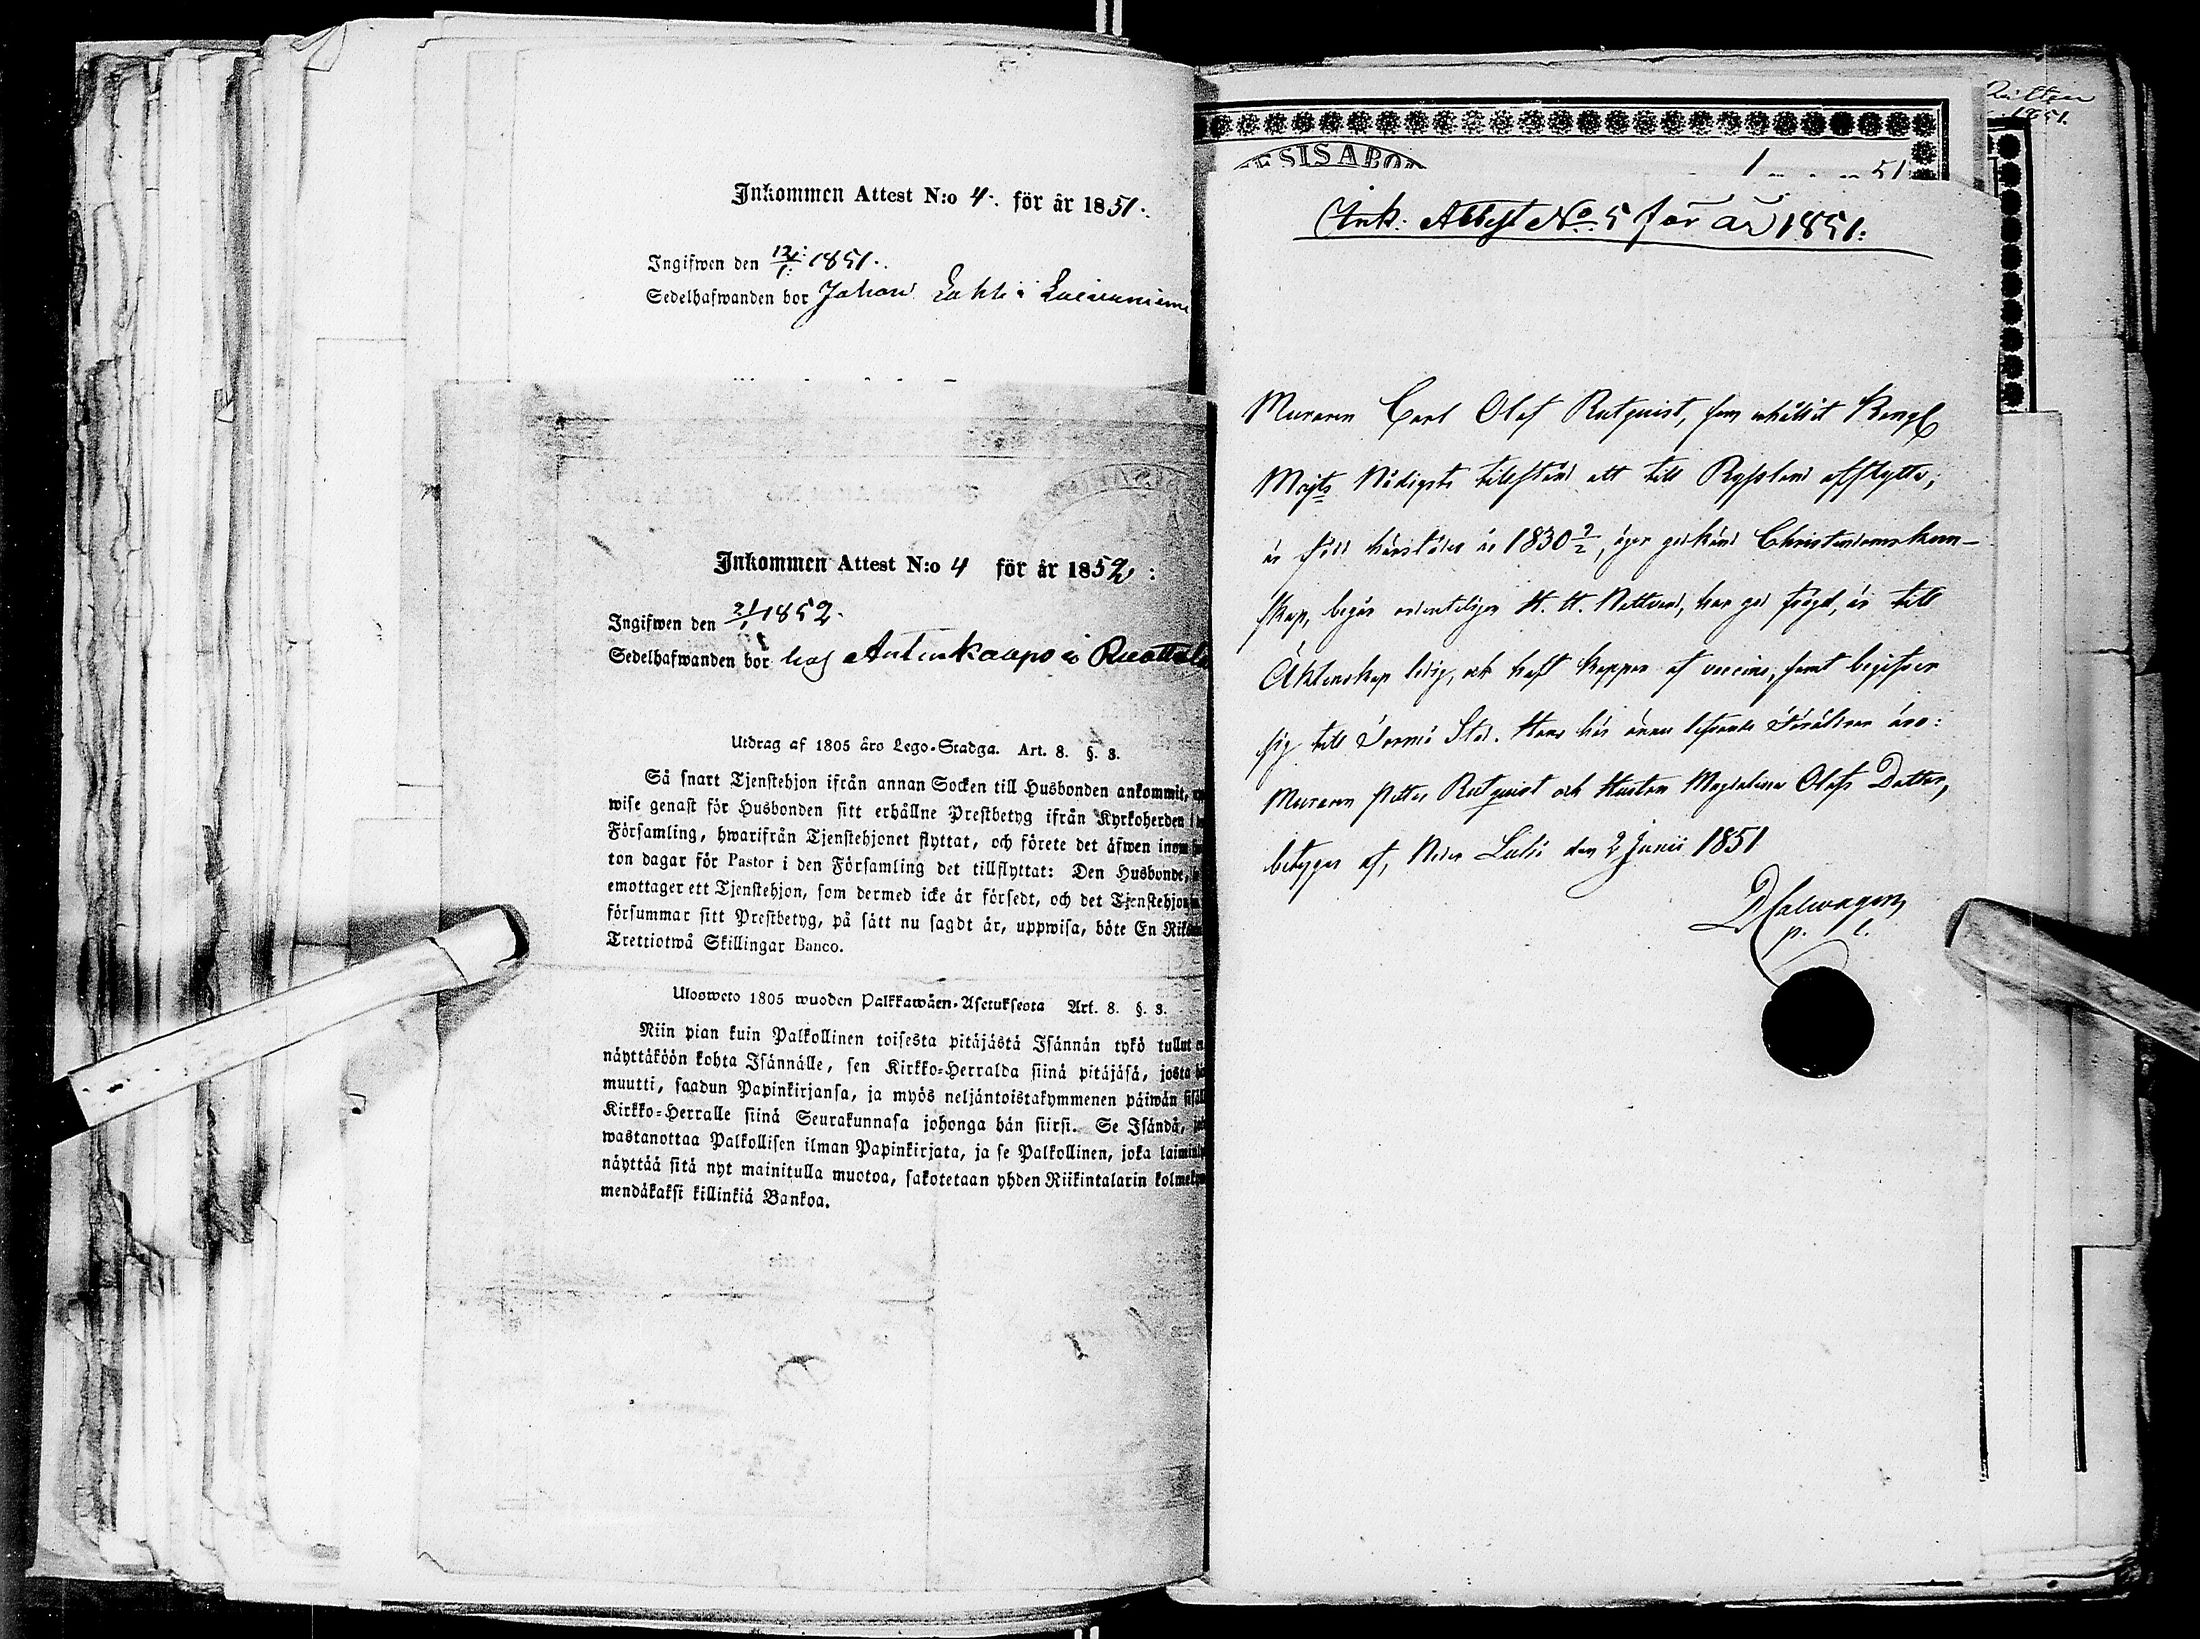 Inkommen Attest N:o 4. för år 1851.
Ingifwen den 12/1 1851.
Sedelhafwanden bor Johan Lahti i
Inkommen Attest N:o 4 för år 1852:
Ingifwen den 21/1 1852.
Sedelhafwanden bor hos Antinkaapo i Ruottala
Utdrag af 1805 års Lego-Stadga. Art. 8. §. 3.
Så snart Tjenstehjon ifrån annan Socken till Husbonden ankommit,
wise genast för Husbonden sitt erhållne Prestbetyg ifrån Kyrkoherden i
Församling, hwarifrån Tjenstehjonet flyttat, och förete det äfwen inom
ton dagar för Pastor i den Församling det tillflyttat: Den Husbonde,
emottager ett Tjenstehjon, som dermed icke är försedt, och det Tjenstehjon
försummar sitt Prestbetyg, på sätt nu sagdt är, uppwisa, böte En Riks
Trettiotwå Skillingar Banco.
Ulosweto 1805 wuoden Palkkawäen-Asetuksesta Art. 8. §. 3.
Niin pian kuin Palkollinen toisesta pitäjästä Isännän tykö tullut
näyttäköön kohta Isännälle, sen Kirkko-Herralda siinä pitäjäsä, josta
muutti, saadun Papinkirjansa, ja myös neljäntoistakymmenen päiwän sisäll
Kirkko-Herralle siinä Seurakunnasa johonga hän siirsi. Se Isändä,
wastanottaa Palkollisen ilman Papinkirjata, ja se Palkollinen, joka laimin
näyttää sitä nyt mainitulla muotoa, sakotetaan yhden Riikintalarin kolmeky
mendäkaksi killinkiä Bankoa.
1851.
SIS ABO
51
Ink. Attest No. 5 för år 1851:
Muraren Carl Olof Rutquist, som erhållit Kongl
Majts Nådigste tillstånd att till Ryssland afflytta,
är född härstädes år 1830 2/2, äger godkänd Christendomskun-
skap, begår ordenteligen H. H. Nattvard, har god frägd, är till
Äktenskap ledig, och haft koppor af vaccine, samt begifver
sig till Torneå Stad. Hans här ännu lefvande Föräldrar äro:
Muraren Petter Rutquist och Hustru Magdalena Olofs Dotter,
betygar af, Neder Luleå den 2 Junii 1851
p. l.